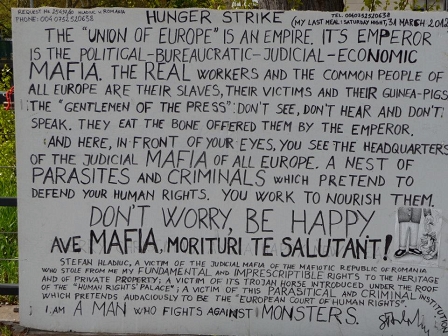 HUNGER STRIKE (MY LAST MEAL: SATURDAY NIGHT, 31 MARCH 2012
PHONE: 0040752520638
TEL. 0040752520638
THE "UNION OF EUROPE" IS AN EMPIRE. IT'S EMPEROR
IS THE POLITICAL-BUREAUCRATIC-JUDICIAL-ECONOMIC
MAFIA. THE REAL WORKERS AND THE COMMON PEOPLE OF
ALL EUROPE ARE THEIR SLAVES, THEIR VICTIMS AND THEIR GUINEA-PIGS.
THE "GENTLEMEN OF THE PRESS": DON'T SEE, DON'T HEAR AND DON'T
SPEAK. THEY EAT THE BONE OFFERED THEM BY THE EMPEROR.
AND HERE, IN FRONT OF YOUR EYES, YOU SEE THE HEADQUARTERS
OF THE JUDICIAL MAFIA OF ALL EUROPE. A NEST OF
PARASITES AND CRIMINALS WHICH PRETEND TO
DEFEND YOUR HUMAN RIGHTS. YOU WORK TO NOURISH THEM.
DON'T WORRY, BE HAPPY
AVE MAFIA, MORITURI TE SALUTANT!
STEFAN HLADIUC, A VICTIM OF THE JUDICIAL MAFIA OF THE MAFIOTIC REPUBLIC OF ROMANIA
WHO STOLE FROM ME MY FUNDAMENTAL AND IMPRESCRIPTIBLE RIGHTS TO THE HERITAGE
AND OF PRIVATE PROPERTY; A VICTIM OF ITS TROJAN HORSE INTRODUCED UNDER THE ROOF
OF THE "HUMAN RIGHTS' PALACE"; A VICTIM OF THIS PARASITICAL AND CRIMINAL NEST
WHICH PRETENDS AUDACIOUSLY TO BE THE "EUROPEAN COURT OF HUMAN RIGHTS".
I AM A MAN WHO FIGHTS AGAINST MONSTERS.